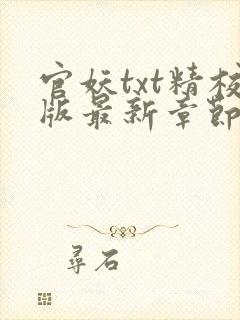 官妖txt精校
版最新章節
尋石